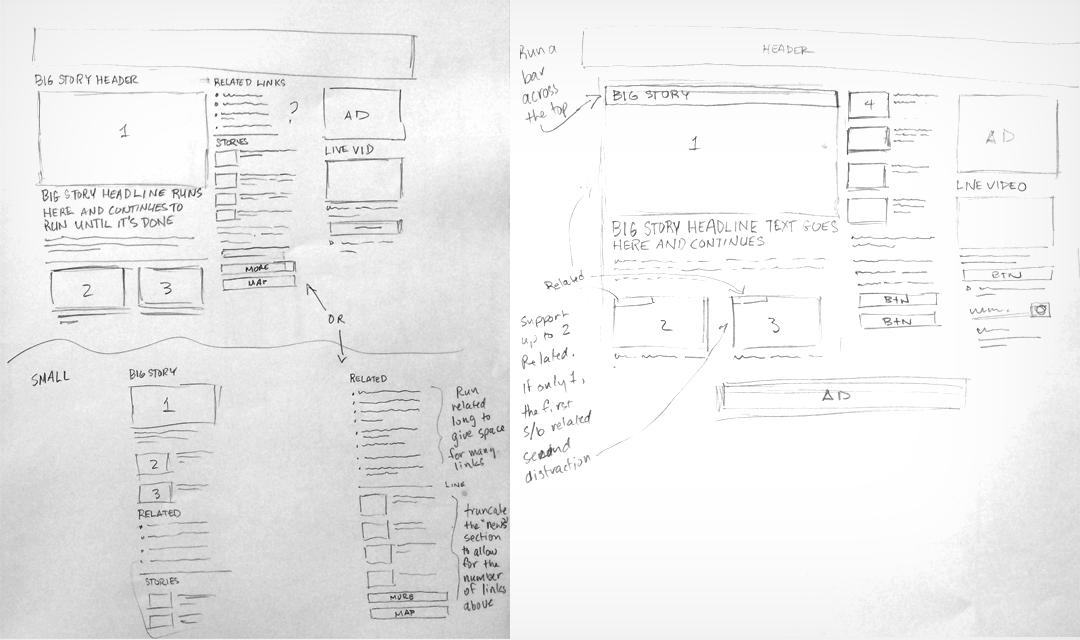 BIG STORY HEADER
1
BIG STORY HEADLINE RUNS
HERE AND CONTINUES TO
RUN UNTIL IT'S DONE
2
3
RELATED LINKS
?
STORIES
MORE
MAP
AD
LIVE VID
OR
SMALL
BIG STORY
1
2
3
RELATED
STORIES
RELATED
Run
related
long to
give space
for many
links
LINE
truncate
the "news"
section
to allow
for the
number
of links
above
MORE
MAP
HEADER
Run a
bar
across
the top
BIG STORY
1
BIG STORY HEADLINE TEXT GOES
HERE AND CONTINUES
Related
2
3
support
up to 2
Related.
If only 1,
the first
s/b related
second
distraction
4
BTN
BTN
AD
LIVE VIDEO
BTN
AD